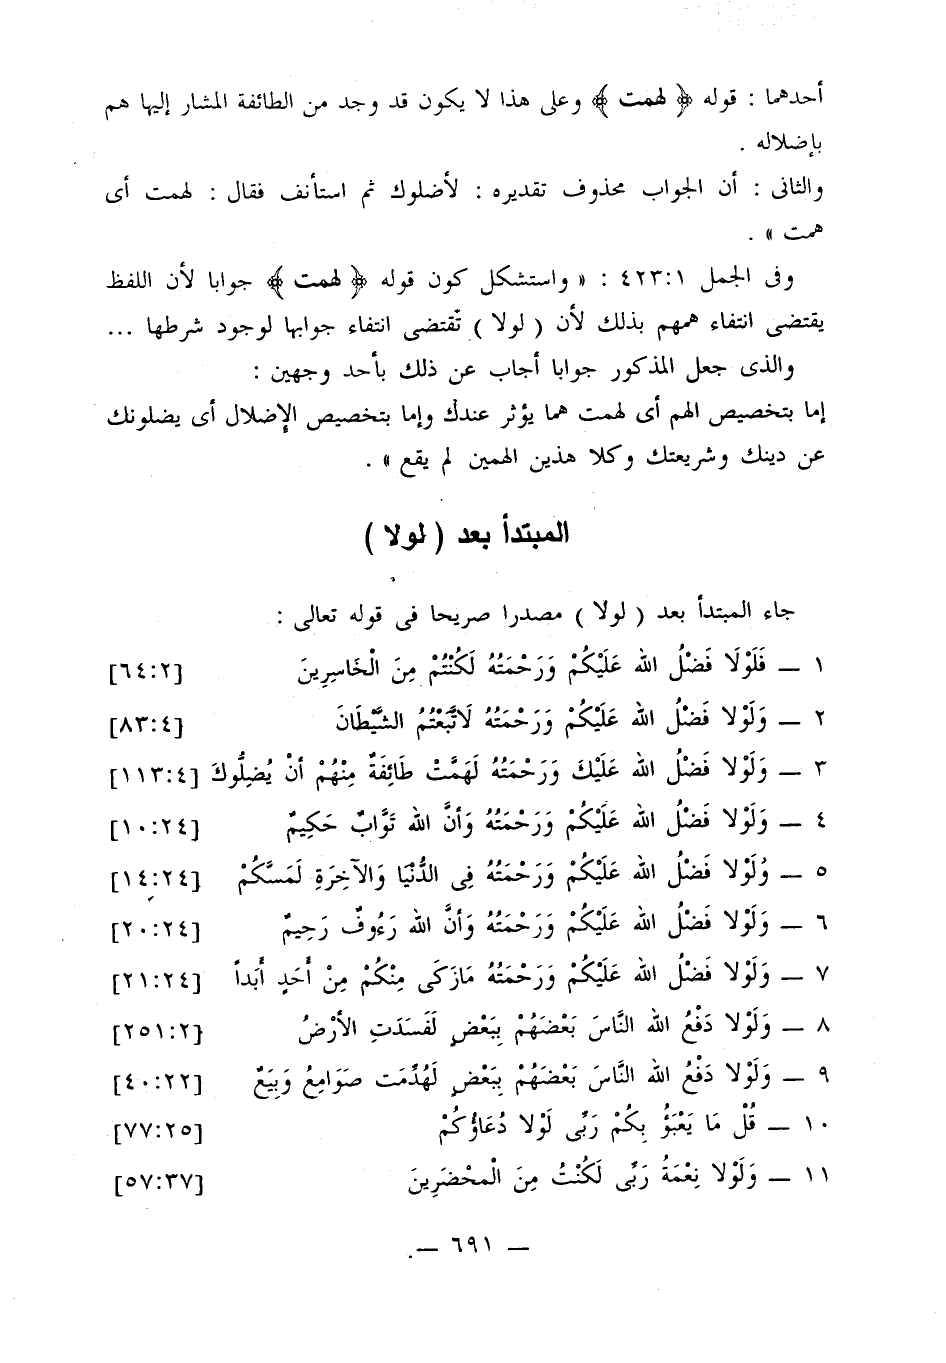 أحدهما : قوله ﴿ لهمت ﴾ وعلى هذا لا يكون قد وجد من الطائفة المشار إليها هم
بإضلاله .
والثانى : أن الجواب محذوف تقديره : لأضلوك ثم استأنف فقال : لهمت أى
همت » .
وفى الجمل ٤٢٣:١ : « واستشكل كون قوله ﴿ لهمت ﴾ جوابا لأن اللفظ
يقتضى انتفاء همهم بذلك لأن ( لولا ) تقتضى انتفاء جوابها لوجود شرطها ...
والذى جعل المذكور جوابا أجاب عن ذلك بأحد وجهين :
إما بتخصيص الهم أى لهمت هما يؤثر عندك وإما بتخصيص الإضلال أى يضلونك
عن دينك وشريعتك وكلا هذين الهمين لم يقع » .
المبتدأ بعد ( لولا )
جاء المبتدأ بعد ( لولا ) مصدرا صريحا فى قوله تعالى :
١ – فَلَوْلَا فَضْلُ الله عَلَيْكُمْ وَرَحْمَتُهُ لَكُنْتُمْ مِنَ الْخَاسِرِينَ [٦٤:٢]
٢ – وَلَوْلا فَضْلُ الله عَلَيْكُمْ وَرَحْمَتُهُ لَاتَّبَعْتُمُ الشَّيْطَانَ [٨٣:٤]
٣ – وَلَوْلا فَضْلُ الله عَلَيْكَ وَرَحْمَتُهُ لَهَمَّتْ طَائِفَةٌ مِنْهُمْ أنْ يُضِلُّوكَ [١١٣:٤]
٤ – وَلَوْلا فَضْلُ الله عَلَيْكُمْ وَرَحْمَتُهُ وَأنَّ الله تَوَّابٌ حَكِيمٌ [١٠:٢٤]
٥ – وَلَوْلا فَضْلُ الله عَلَيْكُمْ وَرَحْمَتُهُ فِى الدُّنْيَا وَالآخِرَةِ لَمَسَّكُمْ [١٤:٢٤]
٦ – وَلَوْلا فَضْلُ الله عَلَيْكُمْ وَرَحْمَتُهُ وَأنَّ الله رَءُوفٌ رَحِيمٌ [٢٠:٢٤]
٧ – وَلَوْلا فَضْلُ الله عَلَيْكُمْ وَرَحْمَتُهُ مَازَكَى مِنْكُمْ مِنْ أَحَدٍ أَبَداً [٢١:٢٤]
٨ – وَلَوْلا دَفْعُ الله النَّاسَ بَعْضَهُمْ بِبَعْضٍ لَفَسَدَتِ الأرْضُ [٢٥١:٢]
٩ – وَلَوْلا دَفْعُ الله النَّاسَ بَعْضَهُمْ بِبَعْضٍ لَهُدِّمَت صَوَامِعُ وَبِيَعٌ [٤٠:٢٢]
١٠ – قُلْ مَا يَعْبَؤُ بِكُمْ رَبِّى لَوْلا دُعَاؤُكُمْ [٧٧:٢٥]
١١ – وَلَوْلا نِعْمَةُ رَبِّى لَكُنْتُ مِنَ الْمحْضَرِينَ [٥٧:٣٧]
– ٦٩١ –